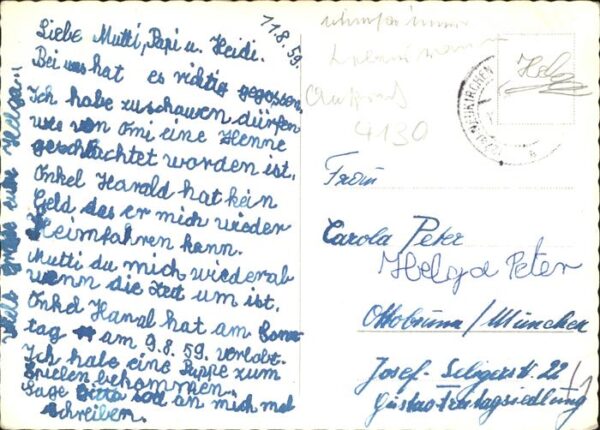 11.8.59.
Liebe Mutti, Papi u. Heidi.
Bei uns hat es richtig gegossen.
Ich habe zuschauen dürfen
wie von Omi eine Henne
geschlachtet worden ist.
Onkel Harald hat kein
Geld das er mich wieder
Heimfahren kann.
Mutti du mich wieder ab
wenn die Zeit um ist.
Onkel Harald hat am Sonn
tag am 9.8.59. verlobt.
Ich habe eine Puppe zum
spielen bekommen.
Sage Gitta soll an mich mal
schreiben.
Viele Grüße eure Helga.
4130
Helga
NEUKIRCHEN
Frau
Carola Peter
Helga Peter
Ottobrunn/München
Josef-Seligerstr. 22
Gustav-Freitagsiedlung